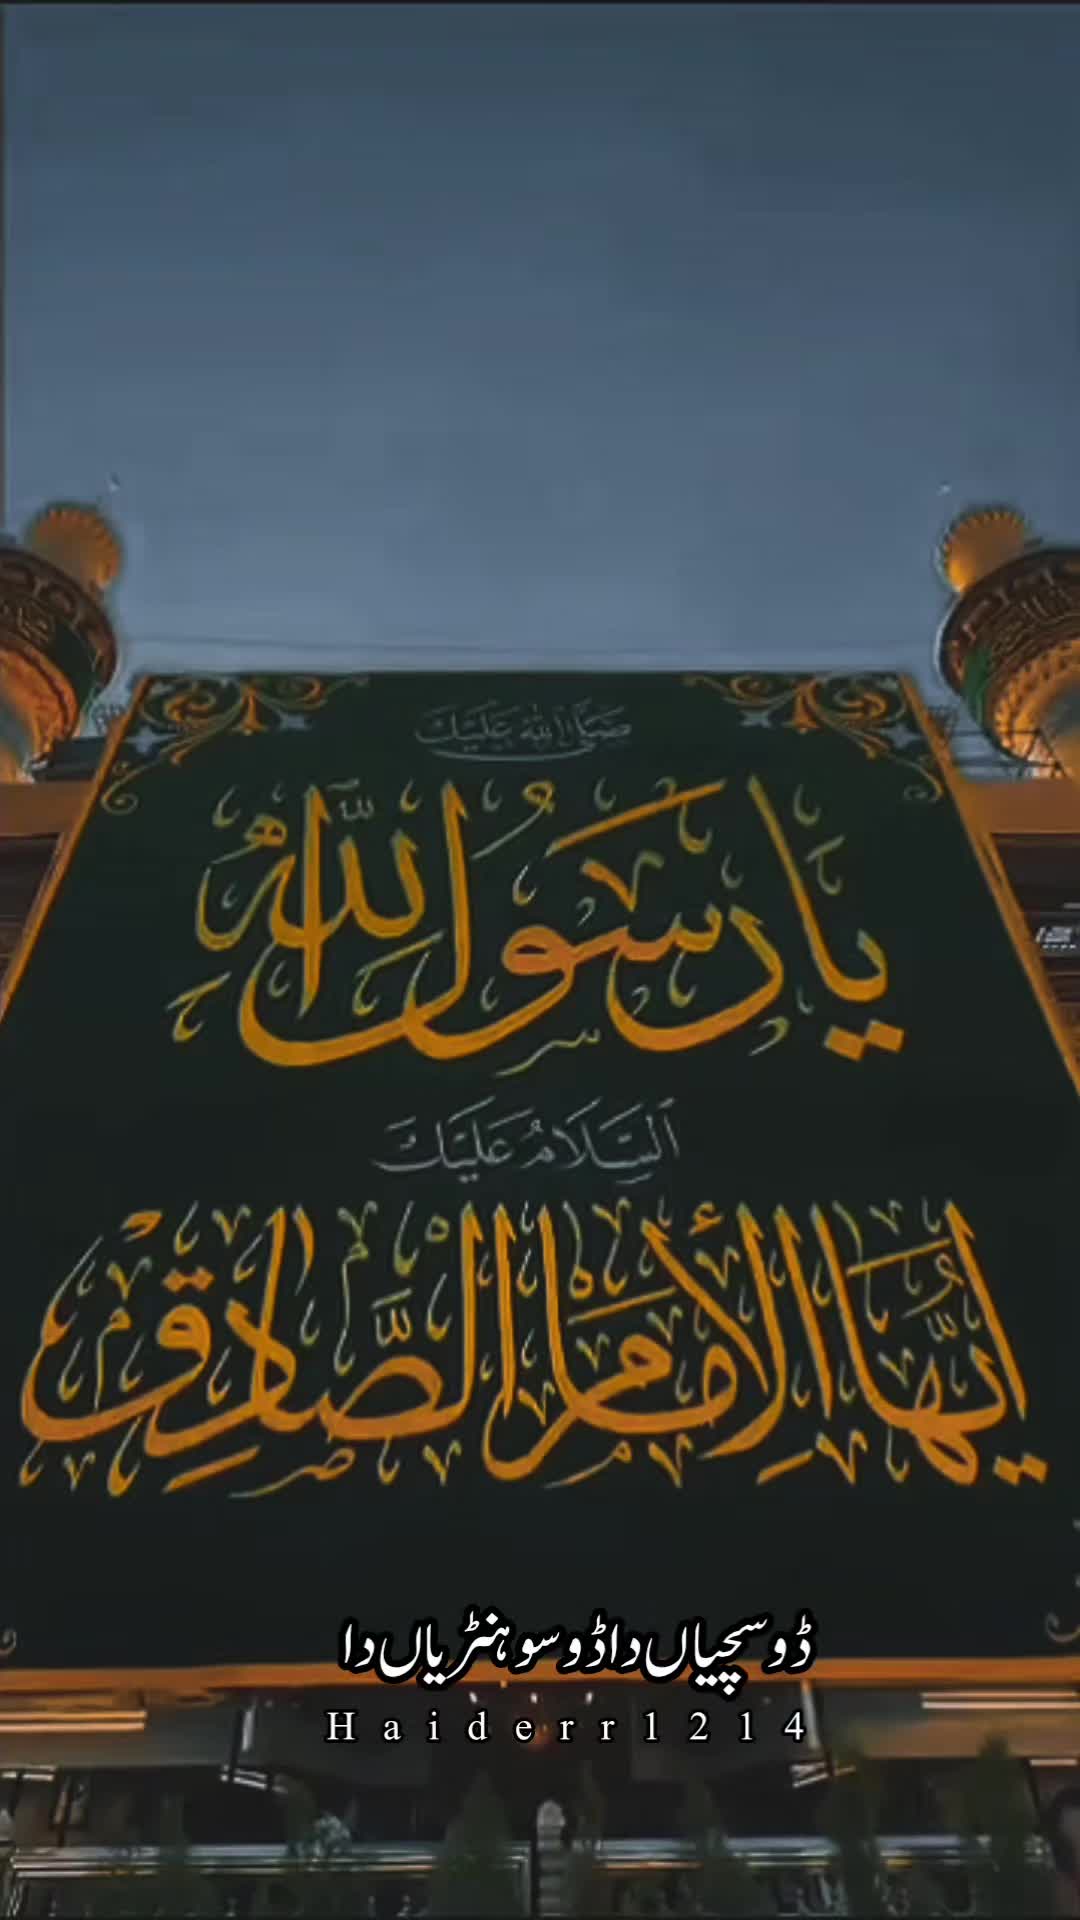 صَلَّى اللهُ عَلَيْكَ
يَا رَسُولَ اللهِ
اَلسَّلَامُ عَلَيْكَ
اَيُّهَا الْإِمَامُ الصَّادِقُ
ڈو سچیاں دا ڈو سوہنڑیاں دا
Haiderr1214